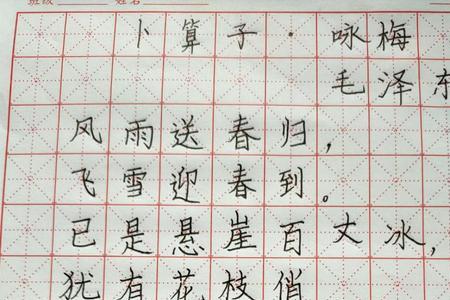 班级 姓名
卜算子·咏梅
毛泽东
风雨送春归，
飞雪迎春到。
已是悬崖百丈冰，
犹有花枝俏